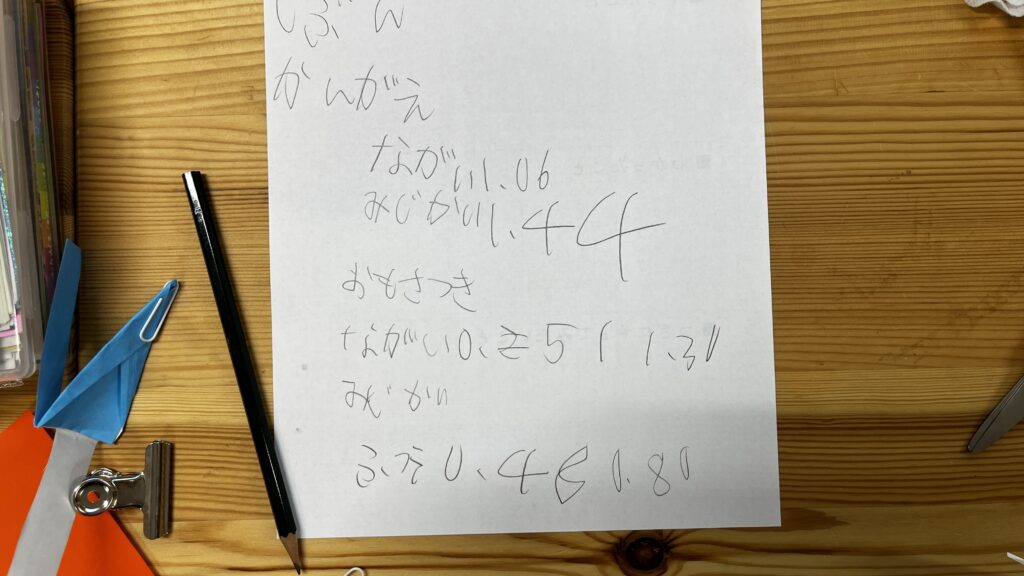 じぶん
かんがえ
ながい1.06
みじかい1.44
おもさつき
ながい0. 51 1.31
みじかい
ふつう0.46 0.80